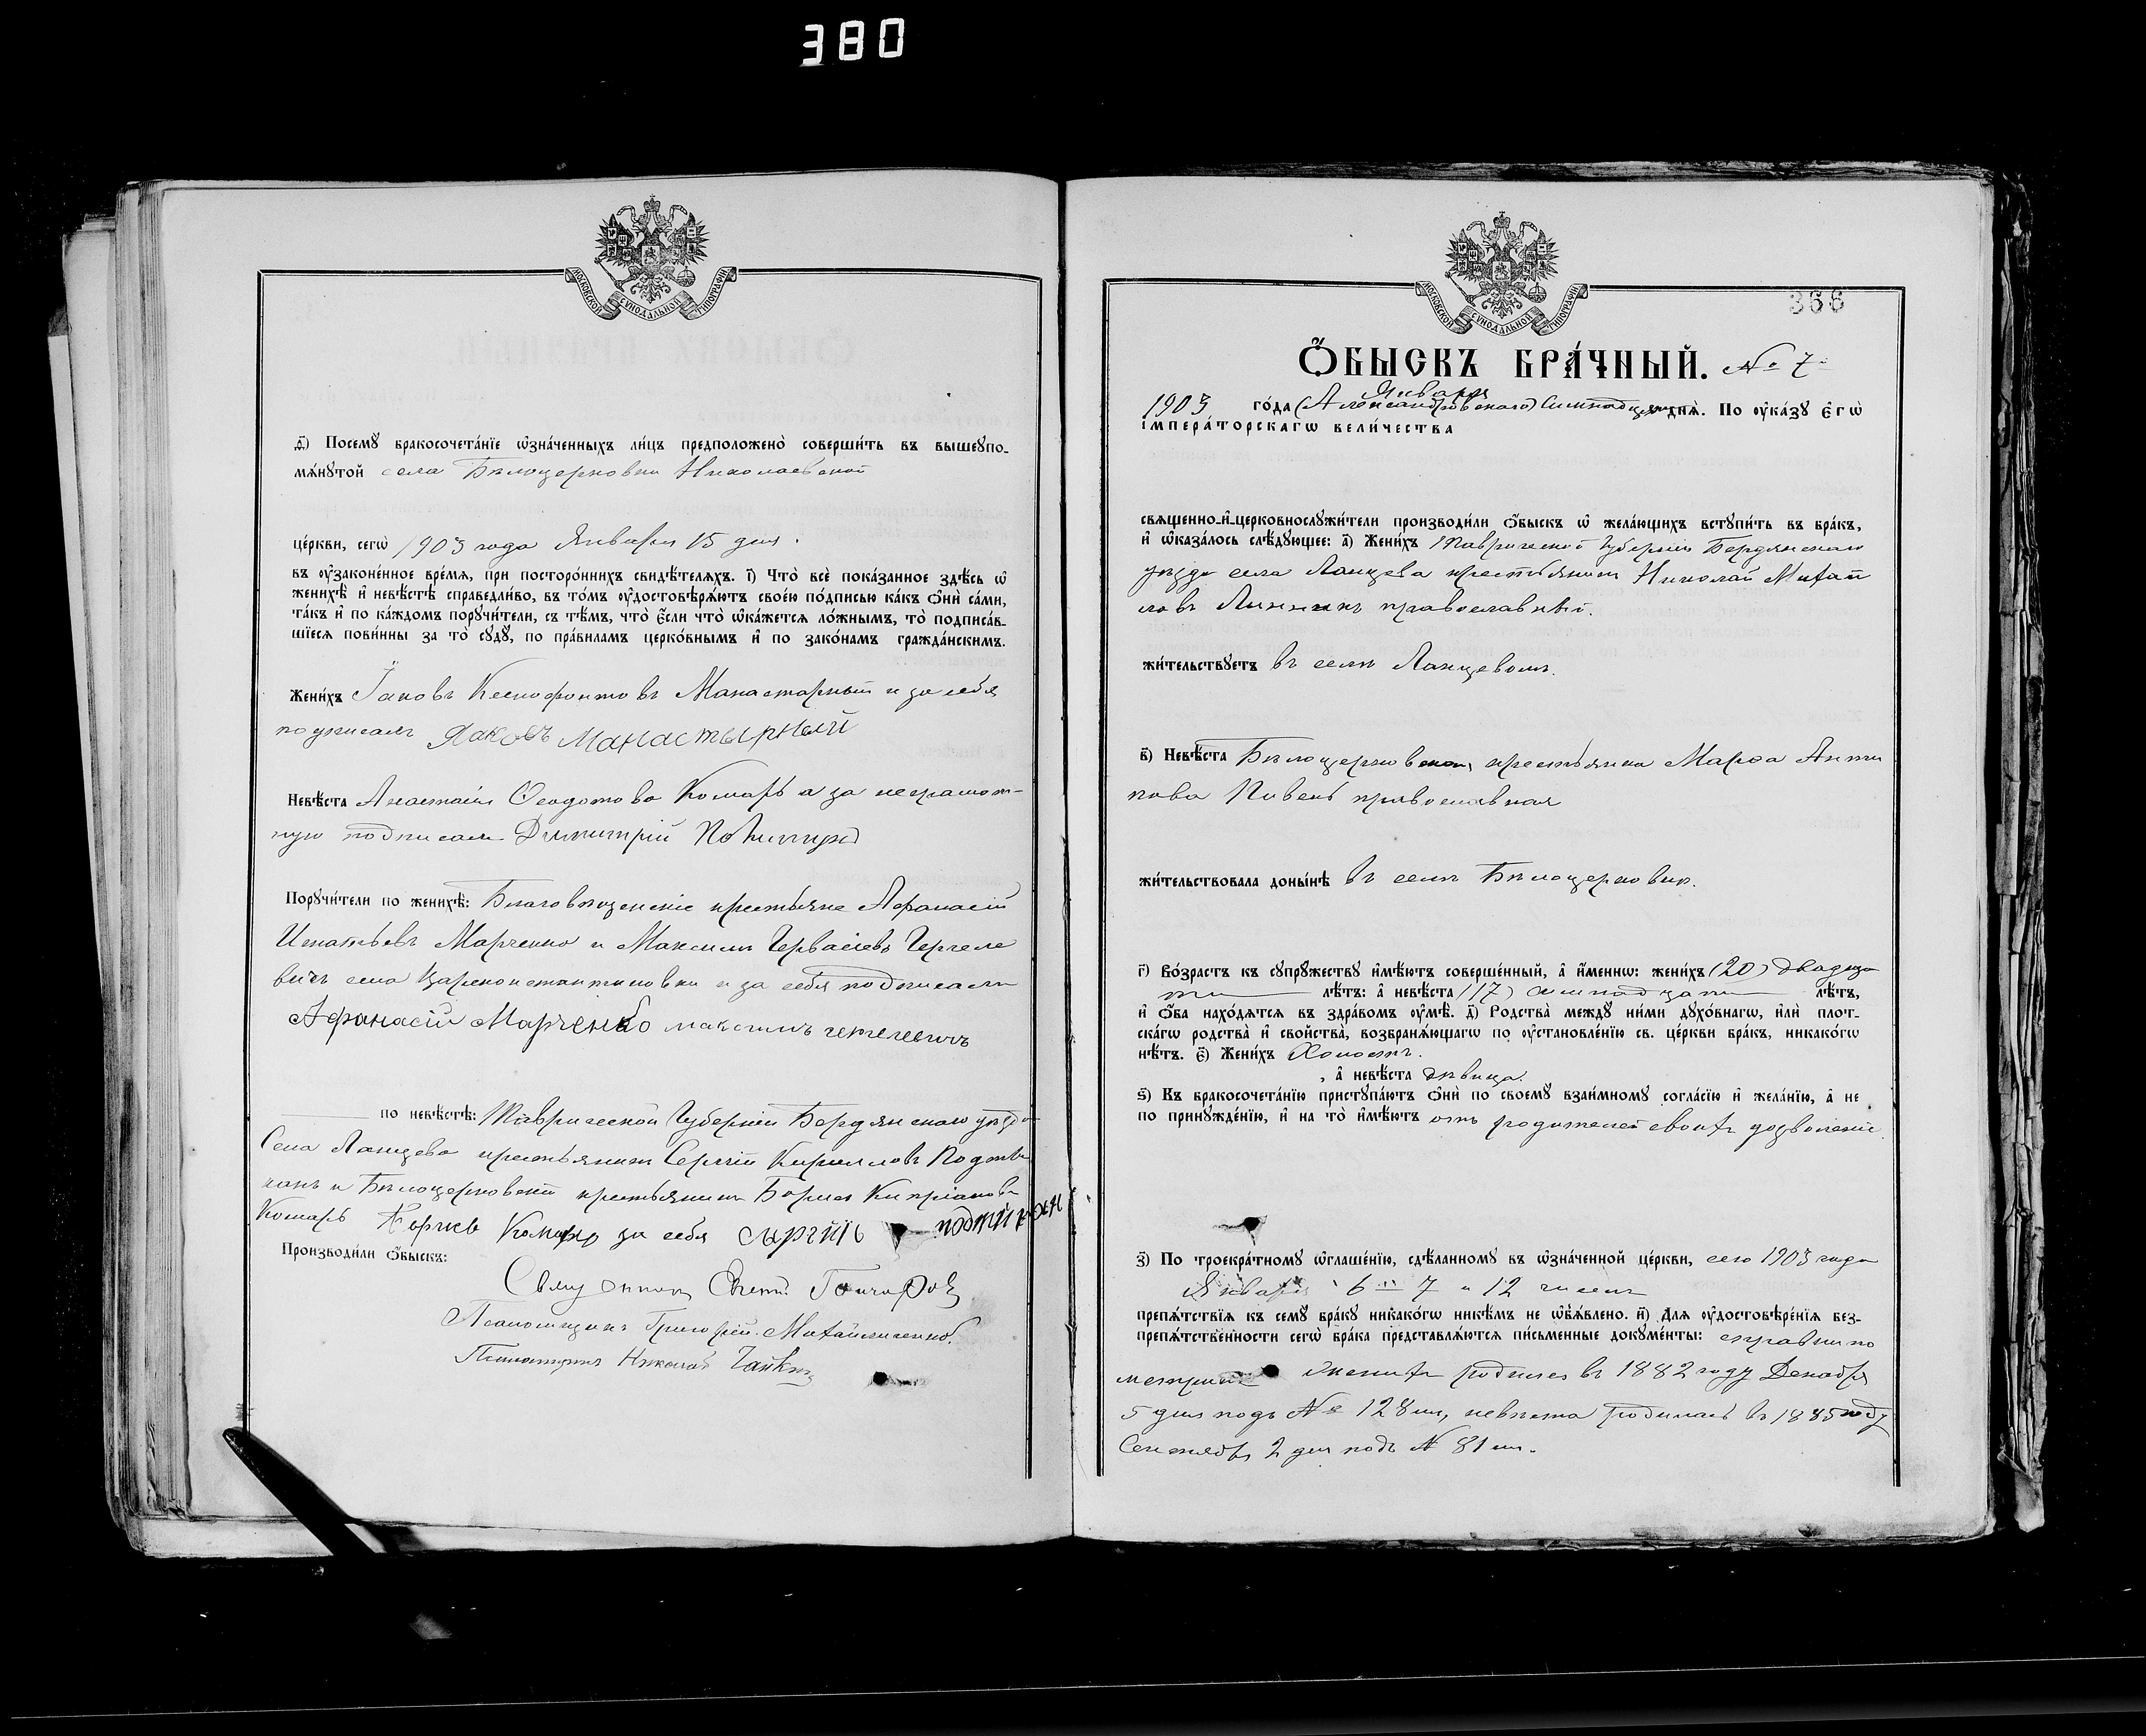 380
МОСКОВСКОЙ СѴНОДАЛЬНОЙ ТИПОГРАФІИ
д҃і) Посемꙋ бракосочета́нїе ѡ҆зна́ченныхъ ли́цъ предположено̀ соверши́ть въ вышеꙋпо-
мѧ́нꙋтой села Бѣлоцерковки Николаевской
це́ркви, сегѡ̀ 1903 года Января 15 дня.
въ ѹ҆законе́нное вре́мѧ, при посторо́ннихъ свидѣ́телѧхъ. і҃) Что̀ всѐ пока́занное здѣ́сь ѡ҆
женихѣ̀ и҆ невѣ́стѣ справедли́во, въ то́мъ ѹ҆достовѣрѧ́ютъ свое́ю по́дписью ка́къ ѻ҆нѝ са́ми,
та́къ и҆ по ка́ждомъ порꙋчи́тели, съ тѣ́мъ, что̀ є҆́сли что̀ ѡ҆ка́жетсѧ ло́жнымъ, то̀ подписа́в-
шїесѧ пови́нны за то̀ сꙋдꙋ̀, по пра́виламъ церко́внымъ и҆ по зако́намъ гражда́нскимъ.
Жени́хъ Іаковъ Ксенофонтовъ Манастырный и за себя
подписалъ Яковъ Манастырный
Невѣ́ста Анастасія Ѳеодотова Комарь а за неграмот-
ную подписалъ Димитрій
Порꙋчи́тели по женихѣ̀: Благовѣщенскіе крестьяне Афанасій
Игнатьевъ Марченко и Максимъ Гервасіевъ Гергеле
вичъ села Цареконстантиновки и за себя подписали
Афанасій Марченко максимъ
по невѣ́стѣ: Таврической Губерніи Бердянскаго уѣзда
Села Ланцева крестьянинъ Сергій Кирилловъ
и Бѣлоцерковскій крестьянинъ Борисъ Кипріановъ
Комарь Борисъ Комарь за себя сыргій
Производи́ли ѻ҆́быскъ:
Свящ Гончаровъ
Псаломщикъ Григорій Михайличенко.
Николай
МОСКОВСКОЙ СѴНОДАЛЬНОЙ ТИПОГРАФІИ
366
Ѻ҆́БЫСКЪ БРА́ЧНЫЙ. № 7
Января
1903 го́да (Александровскаго) Семнадцят днѧ̀. По ѹ҆ка́зꙋ є҆гѡ̀
і҆мпера́торскагѡ вели́чества
свѧщенно-и҆-церковнослꙋжи́тели производи́ли ѻ҆́быскъ ѡ҆ жела́ющихъ встꙋпи́ть въ бра́къ,
и҆ ѡ҆каза́лось слѣ́дꙋющее: а҃) Жени́хъ Таврической Губерніи Бердянскаго
уѣзда села Ланцева крестьянинъ Николай Михай
ловъ Линникъ православный.
жи́тельствꙋетъ въ селѣ Ланцевомъ.
в҃) Невѣ́ста Бѣлоцерковская крестьянка Марѳа Анти
пова Пивень православная
жи́тельствовала доны́нѣ въ селѣ Бѣлоцерковкѣ.
г҃) Во́зрастъ къ сꙋпрꙋ́жествꙋ и҆мѣ́ютъ соверше́нный, а҆ и҆́меннѡ: жени́хъ (20) двадца
ти лѣ́тъ: а҆ невѣ́ста (17) семнадцати лѣ́тъ,
и҆ ѻ҆́ба нахо́дѧтсѧ въ здра́вомъ ѹ҆мѣ̀. д҃) Родства̀ междꙋ̀ ни́ми дꙋхо́внагѡ, и҆лѝ плот-
ска́гѡ родства̀ и҆ сво́йства, возбранѧ́ющагѡ по ѹ҆становле́нїю св. це́ркви бра́къ, никако́гѡ
нѣ́тъ. є҃) Жени́хъ Холостъ.
, а҆ невѣ́ста дѣвица.
ѕ҃) Къ бракосочета́нїю пристꙋпа́ютъ ѻ҆нѝ по своемꙋ̀ взаи́мномꙋ согла́сїю и҆ жела́нїю, а҆ не
по принꙋжде́нїю, и҆ на то̀ и҆мѣ́ютъ отъ родителей своихъ дозволеніе.
з҃) По троекра́тномꙋ ѡ҆глаше́нїю, сдѣ́ланномꙋ въ ѡ҆зна́ченной це́ркви, сего 1903 года
Января 6 7 и 12 чиселъ
препѧ́тствїѧ къ семꙋ̀ бра́кꙋ никако́гѡ никѣ́мъ не ѡ҆б̾ѧ́влено. и҃) Для ѹ҆достовѣре́нїѧ без-
препѧ́тственности сегѡ̀ бра́ка представлѧ́ютсѧ пи́сьменные докꙋме́нты: справки по
метрикѣ женихъ родился въ 1882 году Декабря
5 дня подъ № 128 мъ, невѣста родилась въ 1885 году
Сентября 2 дня подъ № 81 мъ.